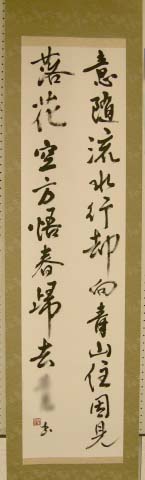 意随流水行却向青山住因見
落花空方悟春歸去
書